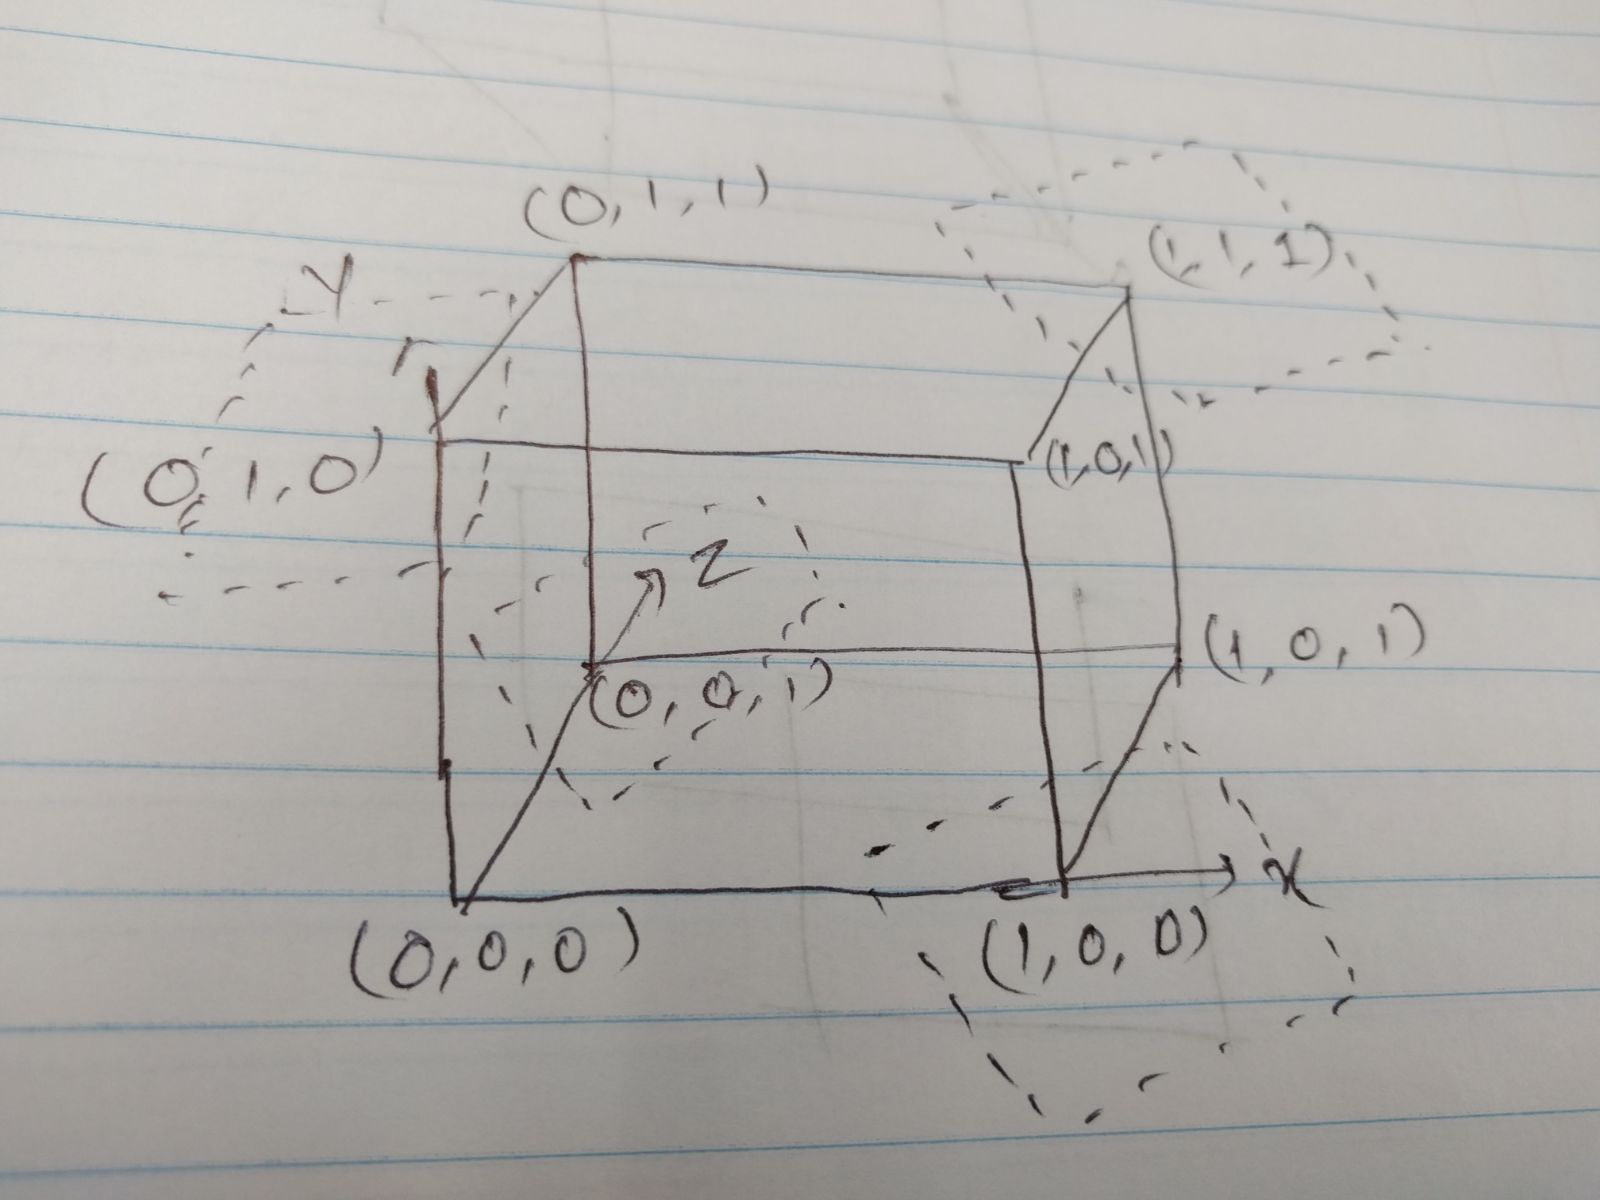 (0,1,1)
(1,1,1)
Y
(0,1,0)
(1,0,1)
Z
(1,0,1)
(0,0,1)
x
(0,0,0)
(1,0,0)